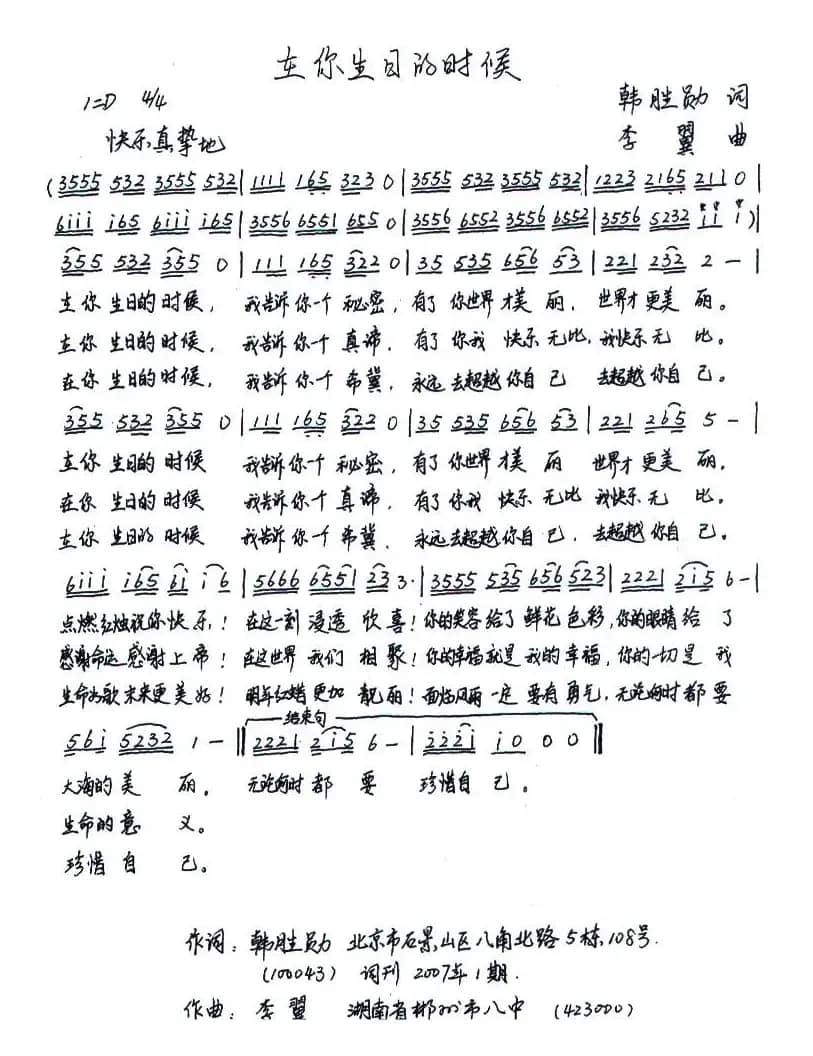 在你生日的时候
1=D 4/4 韩胜勋 词
快乐真挚地 李翼 曲
(3555 532 3555 532 | 1111 165 323 0 | 3555 532 3555 532 | 1223 2165 2110 |
6iii i65 6iii i65 | 3556 6551 655 0 | 3556 6552 3556 6552 | 3556 5232 ii i) |
355 532 355 0 | 111 165 322 0 | 35 535 656 53 | 221 232 2 — |
在你 生日的 时候, 我告诉你一个 秘密, 有了 你世界才美 丽, 世界才更美 丽。
在你 生日的 时候, 我告诉你一个 真谛, 有了 你我 快乐 无比, 我快乐无 比。
在你 生日的 时候, 我告诉你一个 希冀, 永远去超越你自己 去超越你自 己。
355 532 355 0 | 111 165 322 0 | 35 535 656 53 | 221 265 5 — |
在你 生日的 时候 我告诉你一个 秘密, 有了你世界才美 丽 世界才更美 丽,
在你 生日的 时候 我告诉你一个 真谛, 有了你我 快乐 无比 我快乐无 比。
在你 生日的 时候 我告诉你一个 希冀, 永远去超越你自己, 去超越你自 己。
6iii i65 6i i6 | 5666 6551 23 3· | 3555 535 656 523 | 2221 2i5 6 — |
点燃红烛祝你快乐! 在这一刻 浸透 欣喜! 你的笑容给了 鲜花色彩, 你的眼睛给 了
感谢命运感谢上帝! 在这世界 我们 相聚! 你的幸福就是 我的幸福, 你的一切是 我
生命如歌未来更美好! 明年红蜡更加 靓丽! 面临风雨一定 要有勇气, 无论何时都 要
结束句
56i 5232 1 — || 2221 2i5 6 — | 222i i 0 0 0 ||
大海的美 丽。 无论何时都 要 珍惜自 己。
生命的意 义。
珍惜自 己。
作词: 韩胜勋 北京市石景山区八角北路5栋108号.
(100043) 词刊 2007年1期.
作曲: 李翼 湖南省郴州市八中 (423000)